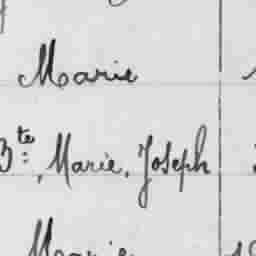 Marie
Bte, Marie, Joseph
Marie